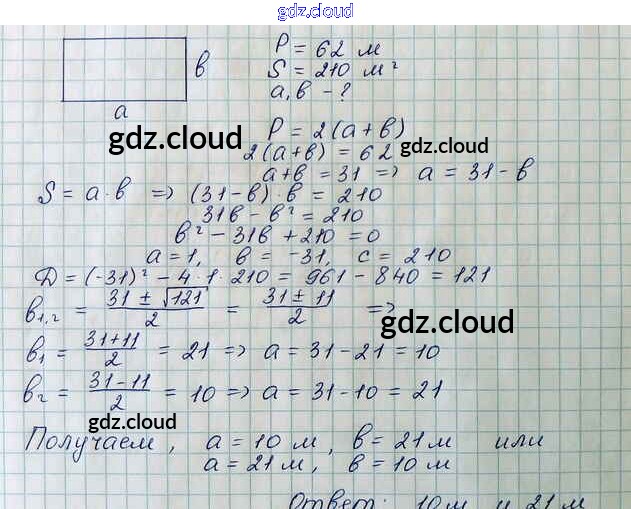 gdz.cloud
P = 62 м
в
S = 210 м²
a, в - ?
a
gdz.cloud
P = 2(a+в)
2(a+в) = 62
gdz.cloud
a+в = 31 => a = 31-в
S = a·в => (31-в)·в = 210
31в - в² = 210
в² - 31в + 210 = 0
a = 1, в = -31, c = 210
Д = (-31)² - 4·1·210 = 961 - 840 = 121
в₁,₂ = (31 ± √121)/2 = (31 ± 11)/2 =>
gdz.cloud
в₁ = (31+11)/2 = 21 => a = 31-21 = 10
в₂ = (31-11)/2 = 10 => a = 31-10 = 21
gdz.cloud
Получаем, a = 10 м, в = 21 м или
a = 21 м, в = 10 м
Ответ: 10 м и 21 м